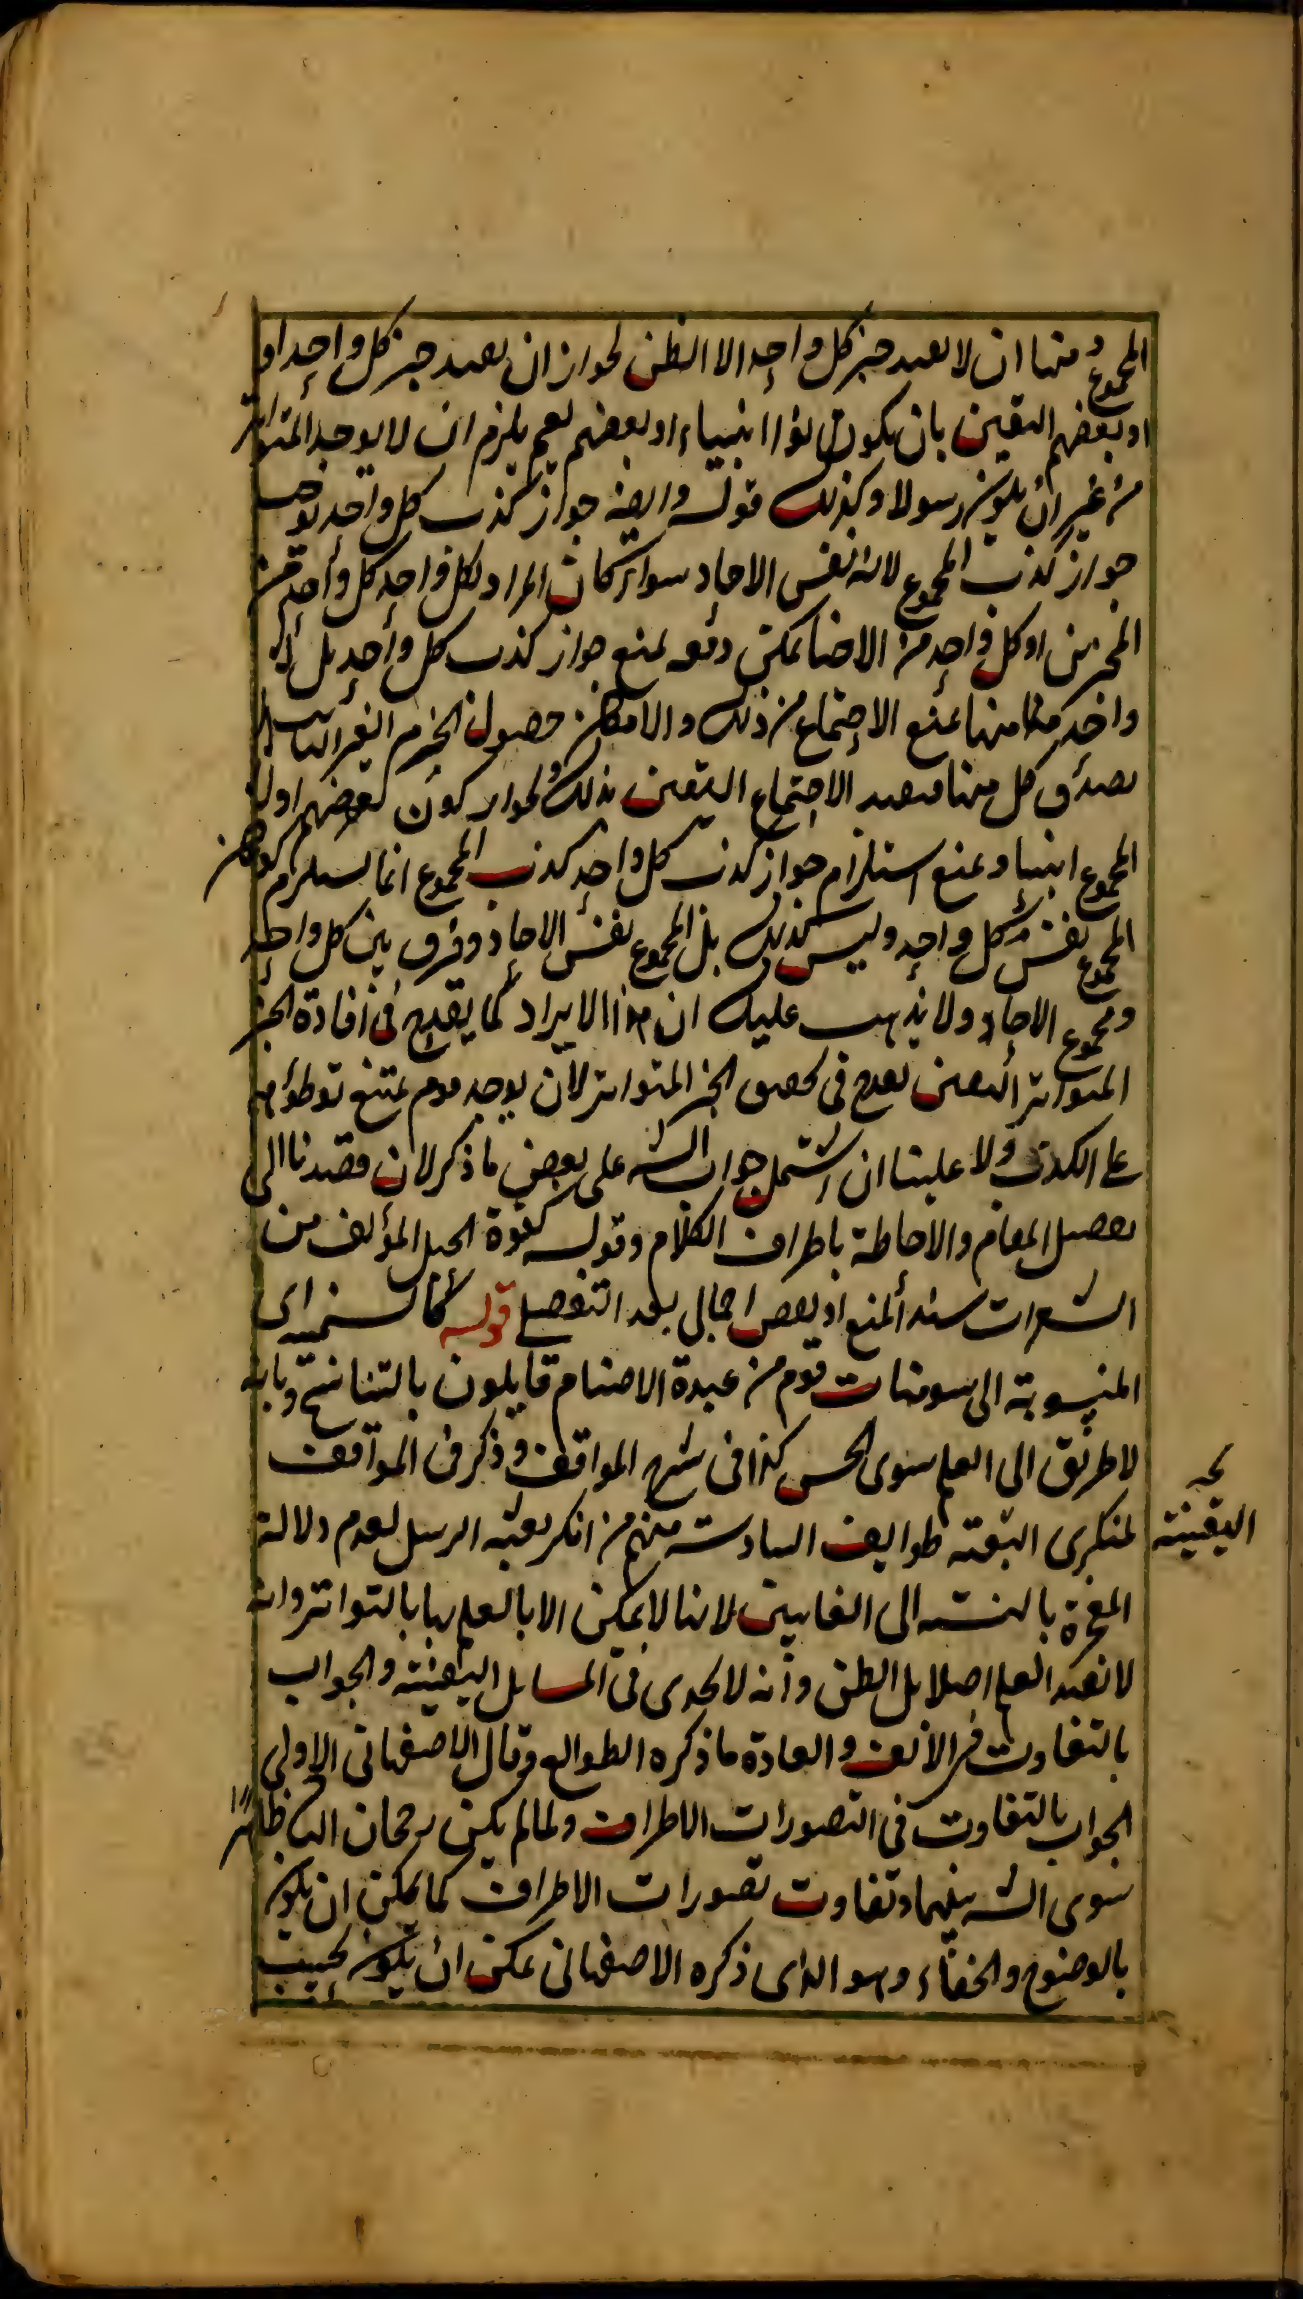 المجموع ومنها ان لا يفيد خبر كل واحد الا الظن لجواز ان يفيد خبر كل واحد او
او بعضهم اليقين بان يكون هؤلاء انبياء او بعضهم نعم يلزم ان لا يوجد المتواتر
من غير ان يكون رسولا وكذلك قوله وايضا جواز كذب كل واحد يوجب
جواز كذب المجموع لانه نفس الاحاد سواء كان المراد بكل واحد كل واحد من
المخبرين او كل واحد من الاخبار يمكن دفعه بمنع جواز كذب كل واحد بل
واحد منها يمنع الاجتماع من ذلك والامكان حصول الجزم الغير الثابت
بصدق كل منها فيفيد الاجتماع اليقين بذلك ولجواز كون بعضهم او
المجموع انبياء وبمنع استلزام جواز كذب كل واحد كذب المجموع انما يستلزم لو كان
المجموع نفس كل واحد وليس كذلك بل المجموع نفس الاحاد وفرق بين كل واحد
ومجموع الاحاد ولا يذهب عليك ان هذا الايراد كما يقدح في افادة الخبر
المتواتر اليقين يقدح في تحقق الخبر المتواتر لان يوجد قوم يمتنع تواطؤهم
على الكذب ولا علينا ان اشتمل جواب الشه على بعض ما ذكر لان قصدنا الى
تفصيل المقام والاحاطة باطراف الكلام وقوله كقوة الحبل المؤلف من
الشعرات سند المنع او نقض اجمالي بعد التفصيل قوله كالسمنية اى
المنسوبة الى سومنات قوم من عبدة الاصنام قايلون بالتناسخ وبانه
لا طريق الى العلم سوى الحس كذا في شرح المواقف وذكر في المواقف
لمنكرى البعثة طوايف السادسة منهم من انكر بعثة الرسل لعدم دلالة
المعجزة بالنسبة الى الغايبين لانها لا يمكن الا بالعلم بها بالتواتر وانه
لا يفيد العلم اصلا بل الظن وانه لا يجدى في المسايل اليقينية والجواب
بالتفاوت في الالف والعادة ما ذكره الطوالع وقال الاصفهاني الاولى
الجواب بالتفاوت في التصورات الاطراف ولما لم يكن رجحان الثا ظاهرا
سوى الشه بينهما وتفاوت تصورات الاطراف كما يمكن ان يكون
بالوضوح والخفاء وهو الذى ذكره الاصفهاني يمكن ان يكون بحسب
اليقينية